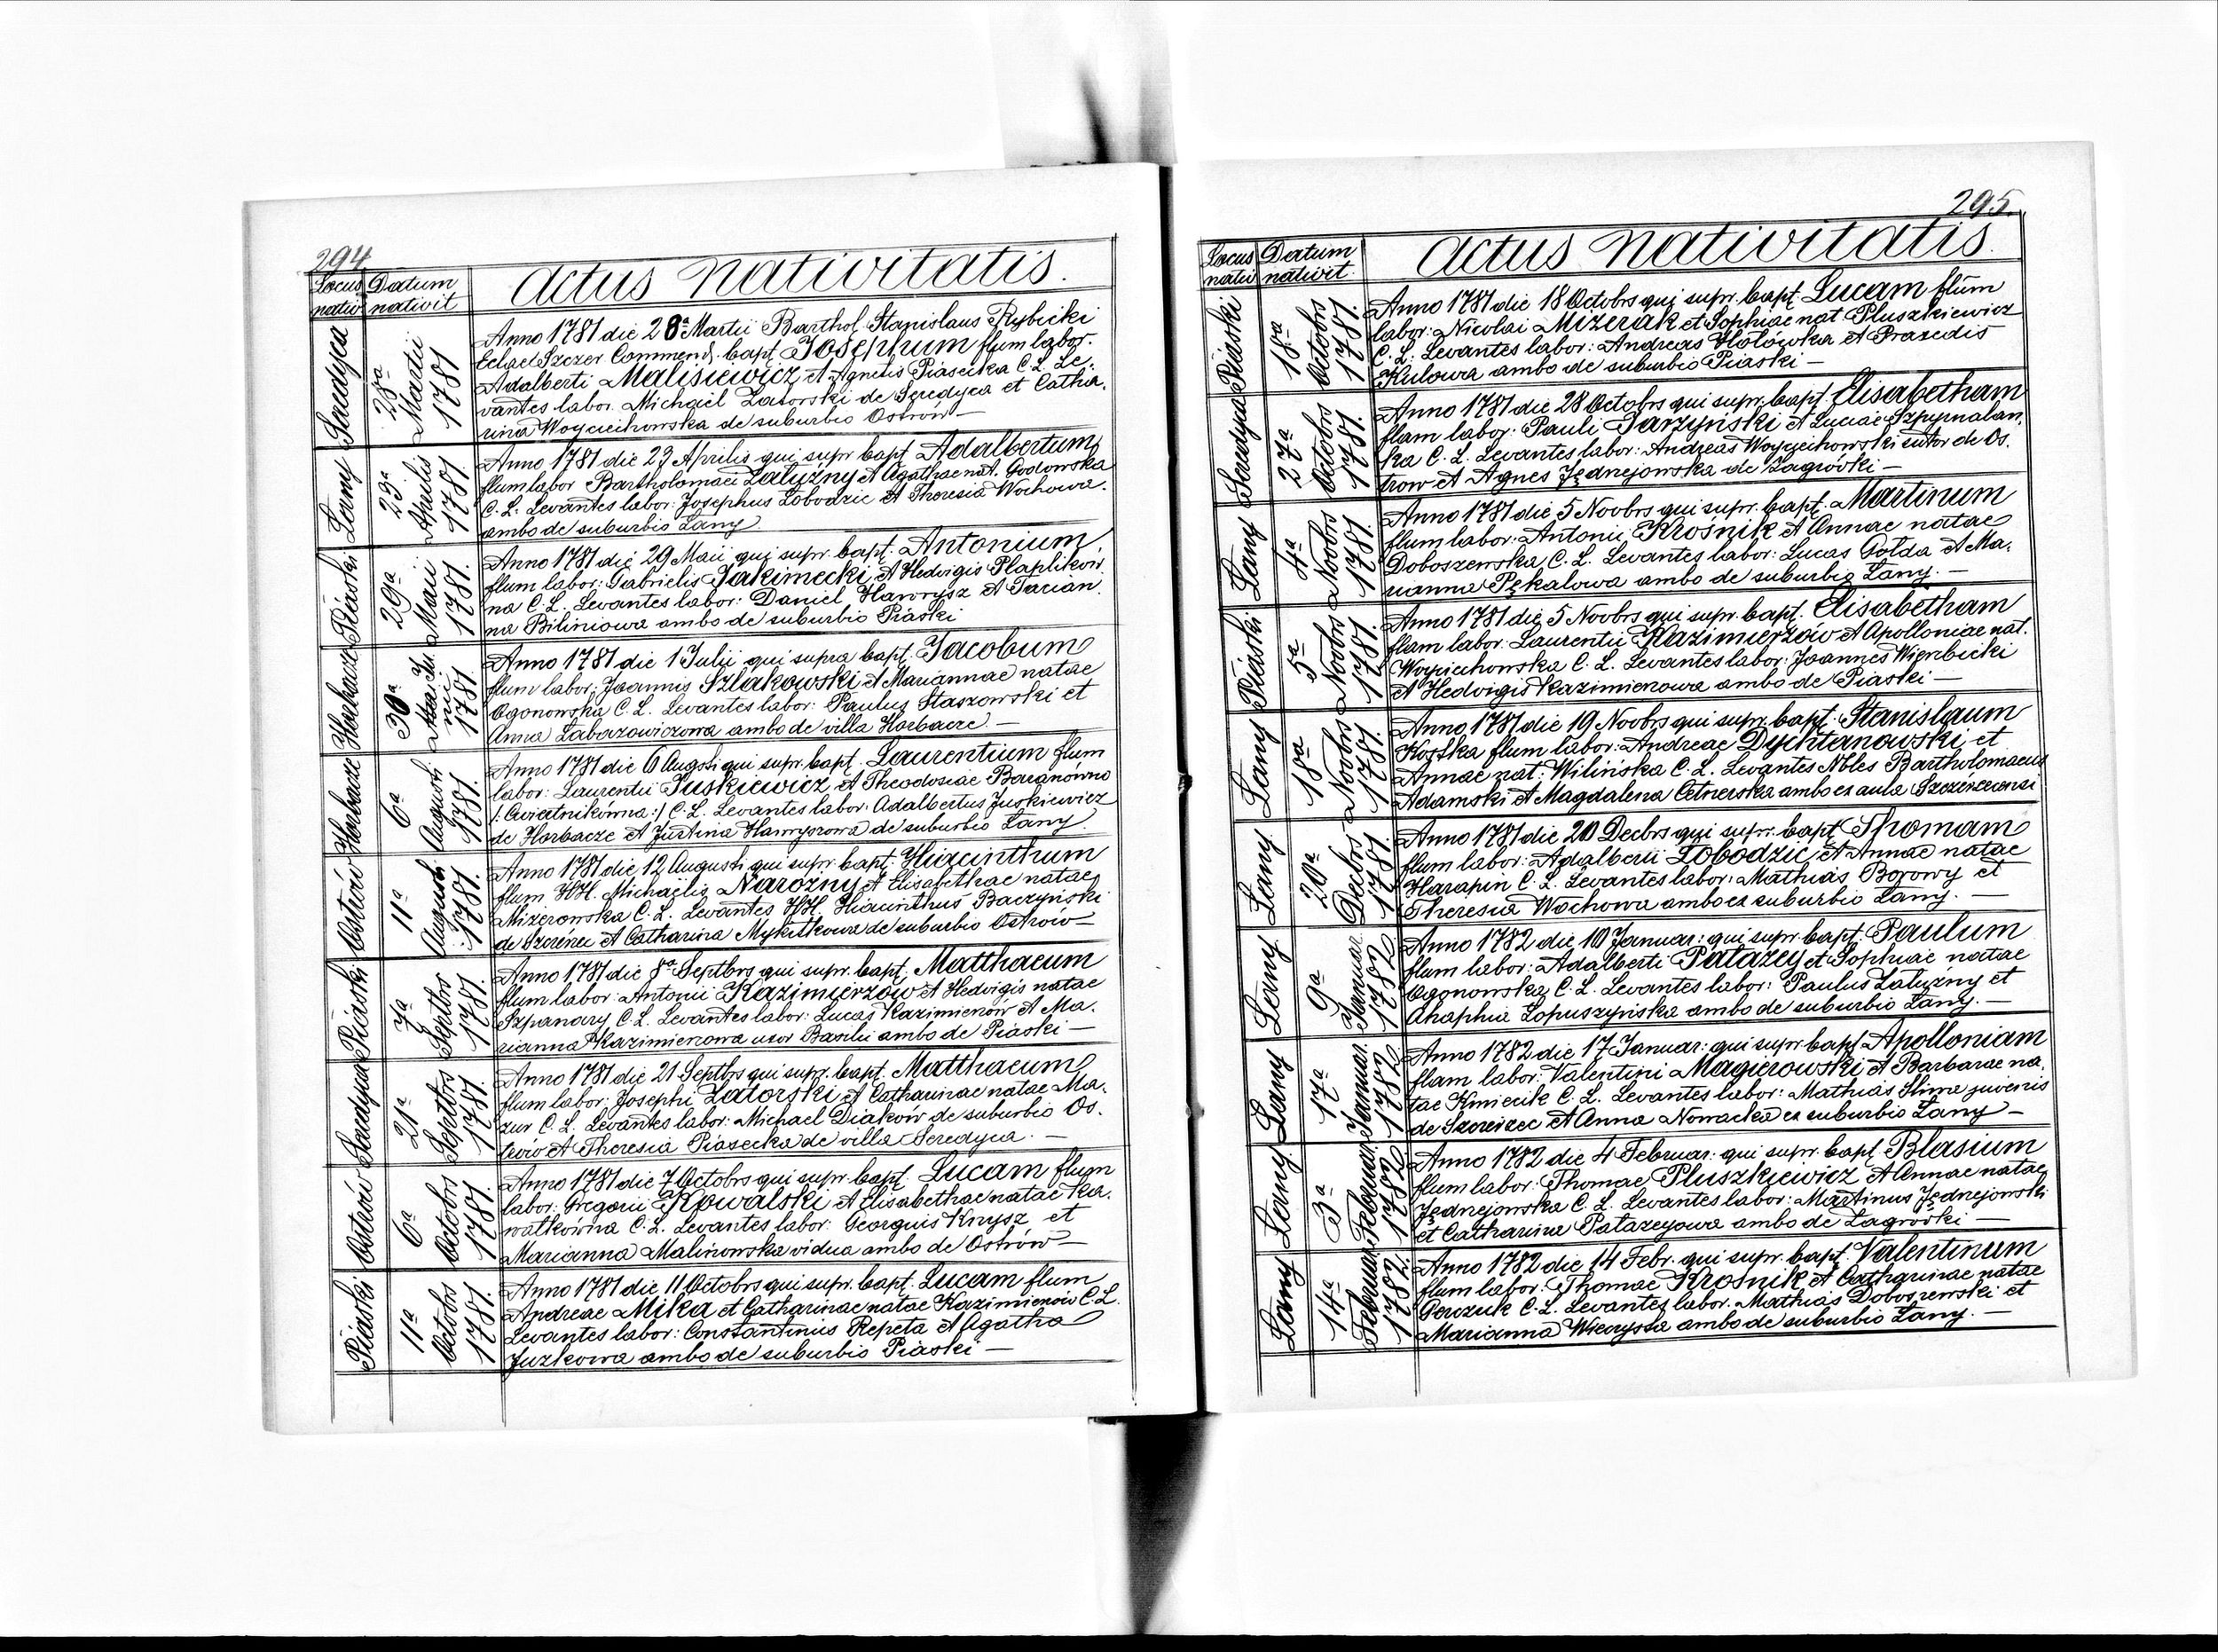 294
Locus nativ
Datum nativit
Actus nativitatis.
Seredyca
28a Martii 1781
Anno 1781 die 28a Martii Barthol. Stanislaus Rybicki
Eclae Szczer Commend. bapt. Josephum flum labor.
Adalberti Malisiewicz et Agnetis Piasecka C. L. Le-
vantes labor. Michael Zatorski de Seredyca et Catha-
rina Woyciechowska de suburbio Ostrów —
Łany
23a Aprilis 1781.
Anno 1781 die 23 Aprilis qui supr bapt. Adalbertum
flum labor Bartholomaei Załużny et Agathae nat. Godowska
C. L. Levantes labor: Josephus Łobodzic et Theresia Wochowa.
ambo de suburbio Łany
Piaski
29a Maii 1781.
Anno 1781 die 29 Maii qui supr. bapt. Antonium
flum labor: Gabrielis Jakimecki et Hedvigis Plaplików.
na C. L. Levantes labor: Daniel Hawrysz et Tacian.
na Biliniowa ambo de suburbio Piaski
Horbacze
30a Juni 1781.
Anno 1781 die 1 Julii qui supra bapt. Jacobum
flum labor: Joannis Szlakowski et Mariannae natae
Ogonowska C. L. Levantes labor: Paulus Staszowski et
Anna Labazowiczowa ambo de villa Horbacze —
Horbacze
6a Augusti 1781.
Anno 1781 die 6 Augsti qui supr. bapt. Laurentium flum
labor: Laurentii Juskiewicz et Theodosiae Baranówno
/: Cwiertnikówna :/ C. L. Levantes labor: Adalbertus Juskiewicz
de Horbacze et Justina Hawryszowa de suburbio Łany
Ostrów
11a Augusti 1781.
Anno 1781 die 12 Augusti qui supr. bapt: Hiacinthum
flum HH. Michaelis Narożny et Elisabethae natae
Mizerowska C. L. Levantes HH. Hiacinthus Baczyński
de Szczérzec et Catharina Mykitkowa de suburbio Ostrow —
Piaski
7a Septbrs 1781.
Anno 1781 die 8a Septbrs qui supr. bapt. Matthaeum
flum labor: Antonii Kazimierzów et Hedvigis natae
Szpanary C. L. Levantes labor: Lucas Kazimierzów et Ma.
rianna Kazimierzowa uxor Basilii ambo de Piaski —
Seredyca
21a Septbrs 1781.
Anno 1781 die 21 Septbrs qui supr. bapt. Matthaeum
flum labor: Josephi Zatorski et Catharinae natae Ma.
zur C. L. Levantes labor: Michael Diaków de suburbio Os.
trów et Theresia Piasecka de villa Seredyca. —
Ostrów
6a Octobrs 1781.
Anno 1781 die 7 Octobrs qui supr. bapt. Lucam flum
labor: Gregorii Kowalski et Elisabethae natae Ka.
walkówna C. L. Levantes labor: Georgius Knysz et
Marianna Malinowska vidua ambo de Ostrów —
Piaski
11a Octobrs 1781.
Anno 1781 die 11 Octobrs qui supr. bapt. Lucam flum
Andreae Mika et Catharinae natae Kazimierzów C. L.
Levantes labor: Constantinus Repeta et Agatha
Juzkowa ambo de suburbio Piaski —
295.
Locus nativ
Datum nativit.
Actus nativitatis.
Piaski
18va Octobrs 1781.
Anno 1781 die 18 Octobrs qui supr. bapt. Lucam flum
labor: Nicolai Mizerak et Sophiae nat Pluszkiewicz
C. L. Levantes labor: Andreas Hołówka et Praxedis
Kulowa ambo de suburbio Piaski —
Seredyca
27a Octobrs 1781.
Anno 1781 die 28 Octobrs qui supr. bapt. Elisabetham
flam labor. Pauli Jarzyński et Luciae Szpyrnalan.
ka C. L. Levantes labor: Andreas Woyciechowski de Os.
trow et Agnes Jędrzejowska de Zagródki —
Łany
4a Novbrs 1781.
Anno 1781 die 5 Novbrs qui supr. bapt. Martinum
flum labor: Antonii Krośnik et Annae natae
Doboszewska C. L. Levantes labor: Lucas Gołda et Ma.
rianna Pękalowa ambo de suburbio Łany. —
Piaski
5a Novbrs 1781.
Anno 1781 die 5 Novbrs qui supr. bapt. Elisabetham
flam labor. Laurentii Kazimierzów et Apolloniae nat.
Woyciechowska C. L. Levantes labor: Joannes Wierzbicki
et Hedvigis Kazimierzowa ambo de Piaski —
Łany
18va Novbrs 1781.
Anno 1781 die 19 Novbrs qui supr. bapt. Stanislaum
Kostka flum labor: Andreae Dychtanowski et
Annae nat: Wilińska C. L. Levantes Nbles Bartholomaeus
Adamski et Magdalena Cetnerska ambo ex aula Szczérzecensi
Łany
20a Decbrs 1781.
Anno 1781 die 20 Decbrs qui supr. bapt. Thomam
flum labor: Adalberti Łobodzic et Annae natae
Harapin C. L. Levantes labor: Mathias Borowy et
Theresia Wochowa ambo ex suburbio Łany. —
Łany
9a Januar. 1782
Anno 1782 die 10 Januar: qui supr. bapt. Paulum
flum labor: Adalberti Patazey et Sophiae natae
Ogonowska C. L. Levantes labor: Paulus Załużny et
Ahaphia Łopuszyńska ambo de suburbio Łany. —
Łany
17a Januar. 1782
Anno 1782 die 17 Januar: qui supr. bapt Apolloniam
flam labor: Valentini Magierowski et Barbarae na.
tae Kmiecik C. L. Levantes labor: Mathias Slima juvenis
de Szczerzec et Anna Nowacka ex suburbio Łany —
Łany
3a Februar. 1782
Anno 1782 die 4 Februar: qui supr. bapt. Blasium
flum labor: Thomae Pluszkiewicz et Annae natae
Jędrzejowska C. L. Levantes labor: Martinus Jędrzejowski
et Catharina Patazeyowa ambo de Zagródki —
Łany
14a Februar. 1782.
Anno 1782 die 14 Febr. qui supr. bapt. Valentinum
flum labor. Thomae Krośnik et Catharinae natae
Gorczuk C. L. Levantes labor. Mathias Doboszewski et
Marianna Wierzyska ambo de suburbio Łany. —